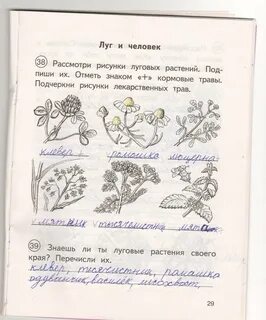 Луг и человек
38 Рассмотри рисунки луговых растений. Под-
пиши их. Отметь знаком «+» кормовые травы.
Подчеркни рисунки лекарственных трав.
клевер ромашка люцерна
мятлик тысячелистник мята
39 Знаешь ли ты луговые растения своего
края? Перечисли их.
клевер, тысячелистник, ромашка
одуванчик, василёк, лисохвост,
29